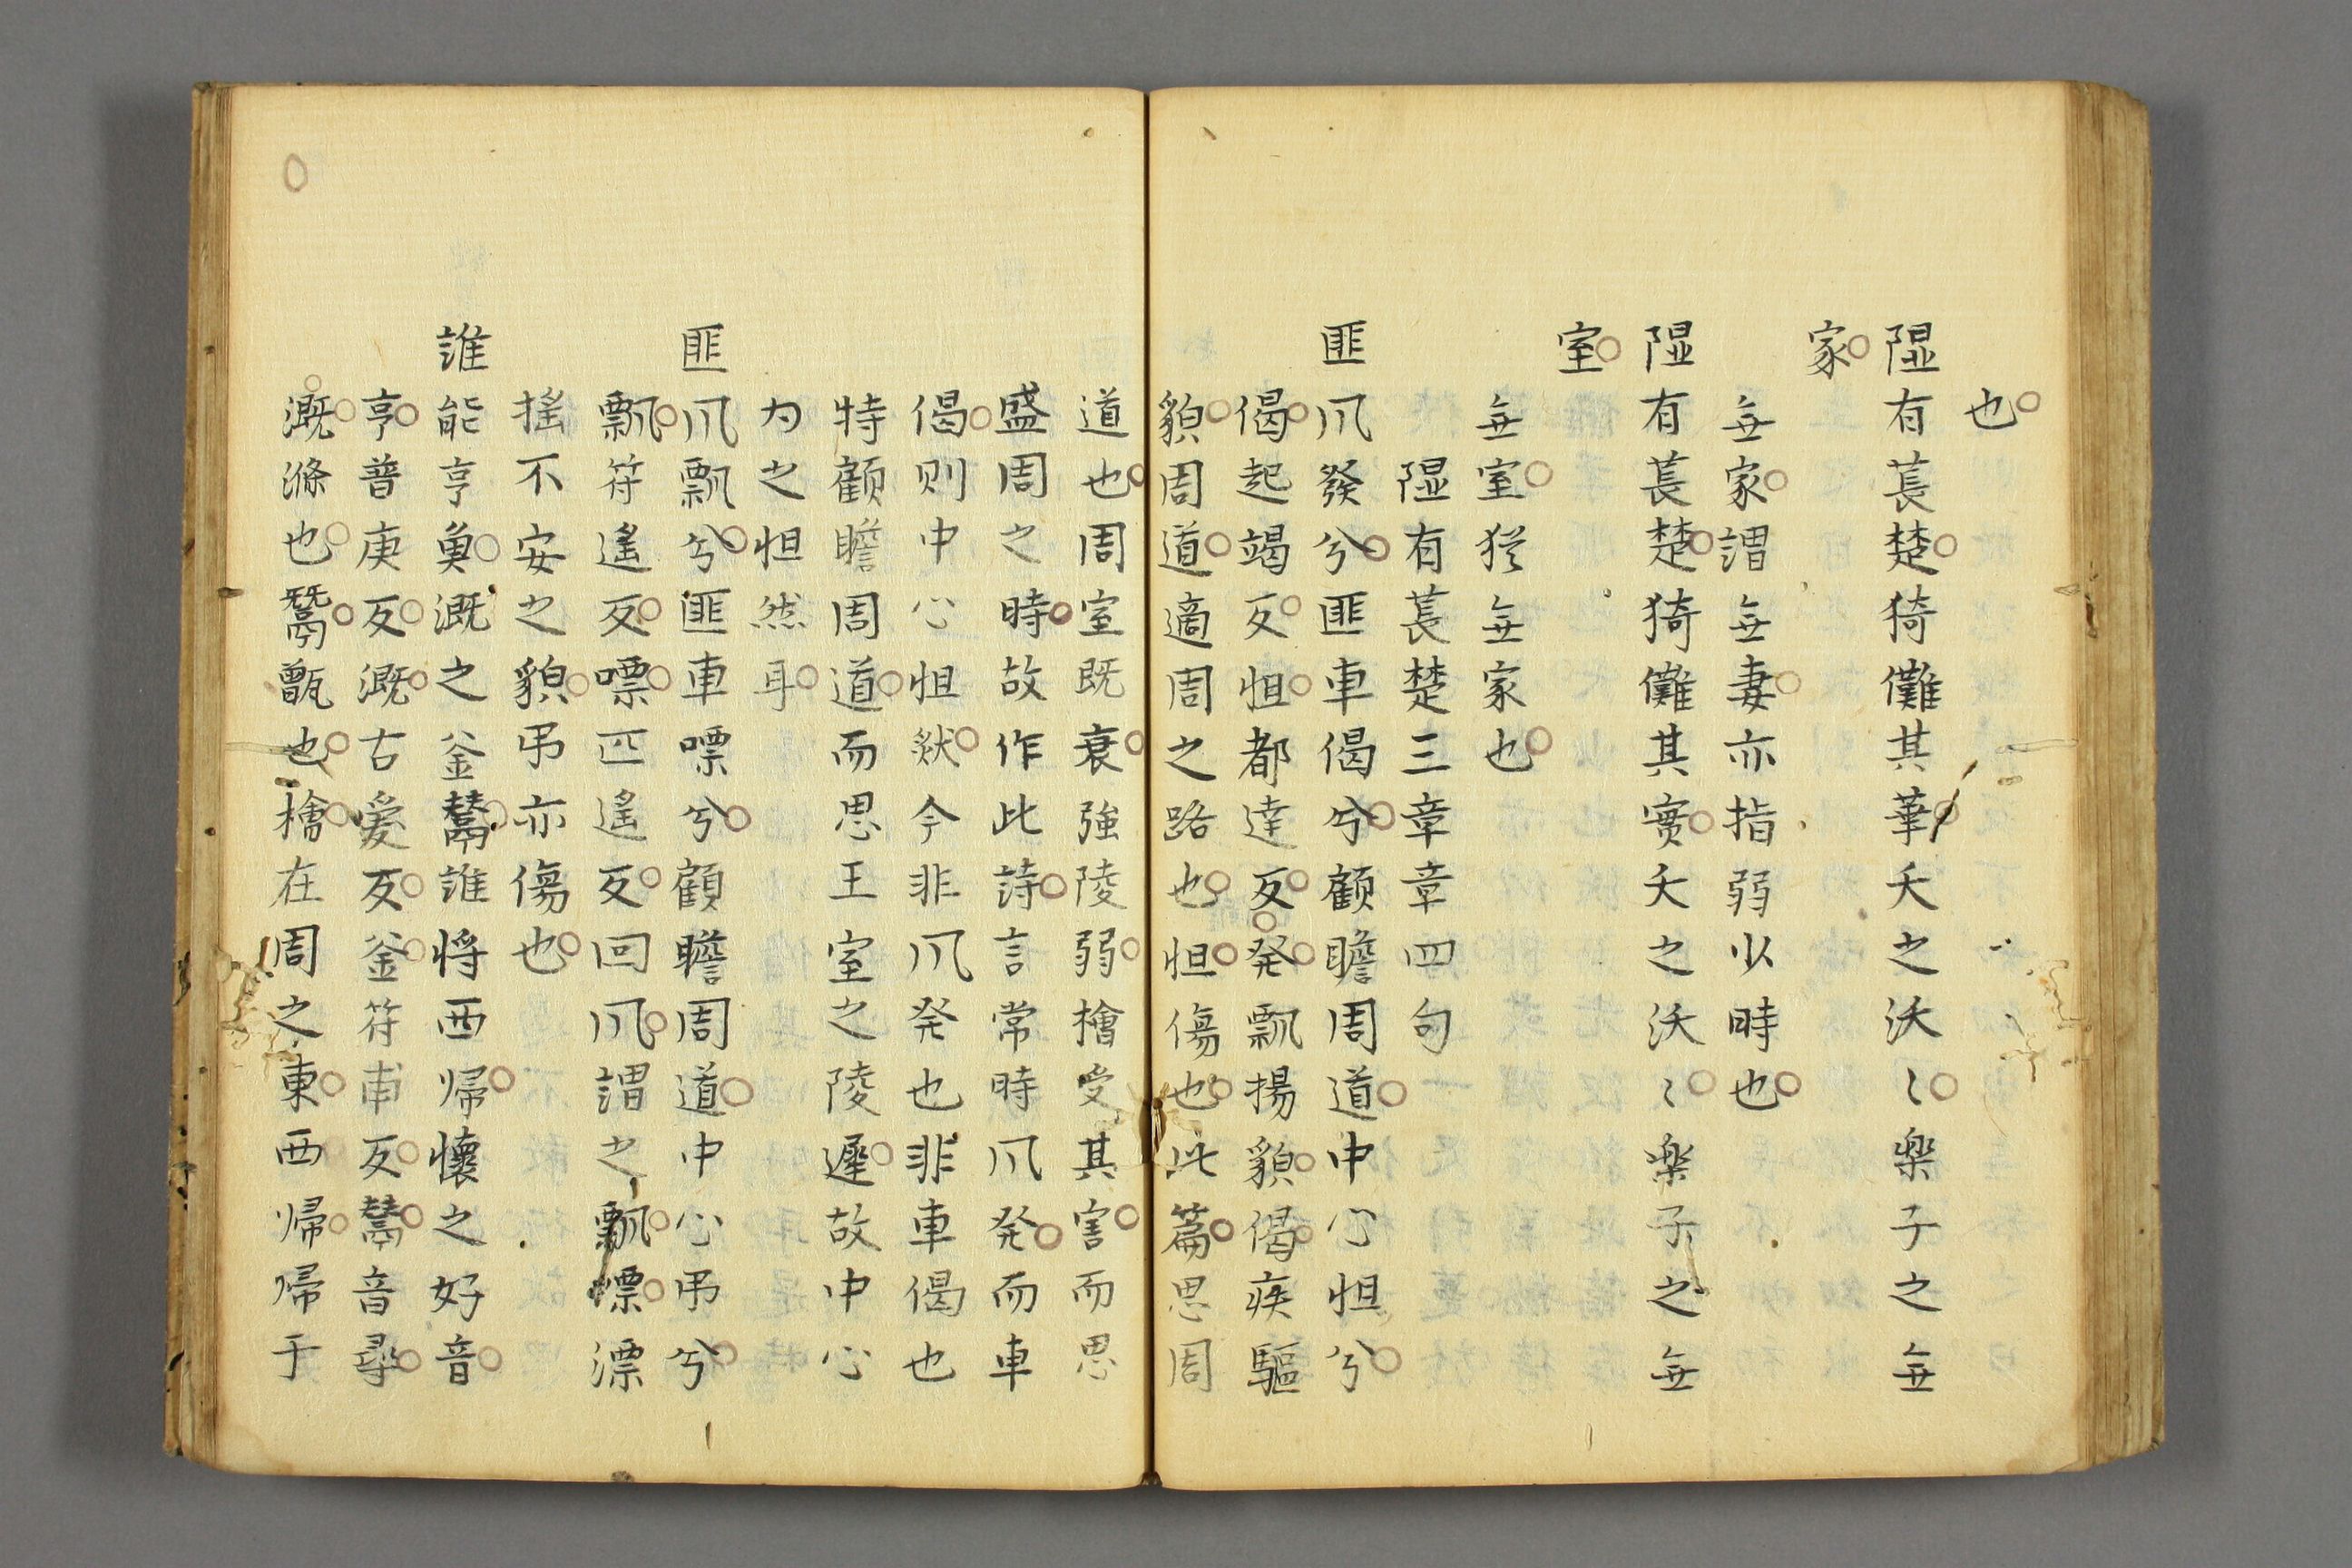 也
隰有萇楚猗儺其華夭之沃〻楽子之無
家
無家謂無妻亦指弱少時也
隰有萇楚猗儺其実夭之沃〻楽子之無
室
無室犹無家也
隰有萇楚三章章四句
匪凬發兮匪車偈兮顧瞻周道中心怛兮
偈起竭反怛都達反発飄揚貌偈疾驅
貌周道適周之路也怛傷也此篇思周
道也周室既衰強陵弱檜受其害而思
盛周之時故作此詩言常時凬発而車
偈則中心怛然今非凬発也非車偈也
特顧瞻周道而思王室之陵遲故中心
为之怛然耳
匪凬飄兮匪車嘌兮顧瞻周道中心弔兮
飄符遙反嘌匹遙反回凬謂之飄嘌漂
揺不安之貌弔亦傷也
誰能亨魚溉之釜鬵誰将西帰懐之好音
亨普庚反溉古愛反釜符甫反鬵音尋
溉滌也鬵甑也檜在周之東西帰帰于